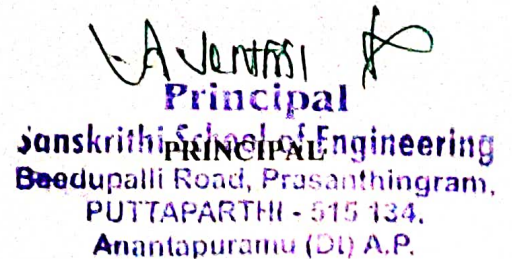 Principal
Sanskrithi School of Engineering
PRINCIPAL
Beedupalli Road, Prasanthingram,
PUTTAPARTHI - 515 134.
Anantapuramu (Dt) A.P.